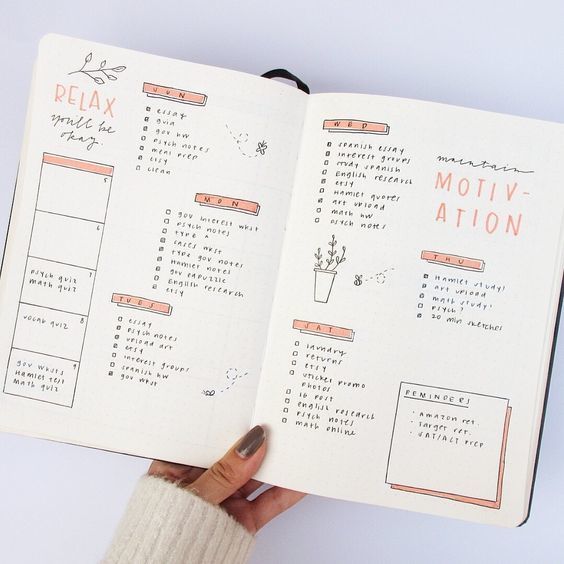 RELAX
you'll be
okay.
5
6
7
psych quiz
math quiz
8
vocab quiz
9
gov wksts
Hamlet test
math quiz
SUN
essay
gov hw
psych notes
meal prep
etsy
clean
MON
gov interest wkst
psych notes
type
cases wkst
type gov notes
Hamlet notes
gov edpuzzle
English research
etsy
TUES
essay
psych notes
upload art
etsy
interest groups
spanish hw
gov wkst
WED
spanish essay
interest groups
study spanish
English research
etsy
Hamlet quotes
art upload
math hw
psych notes
maintain
MOTIV-
ATION
THU
Hamlet study!
art upload
math study!
psych?
20 min sketches
SAT
laundry
returns
etsy
sticker promo
photos
IG post
english research
psych notes
math online
REMINDERS
• Amazon ret.
• Target ret.
• SAT/ACT prep